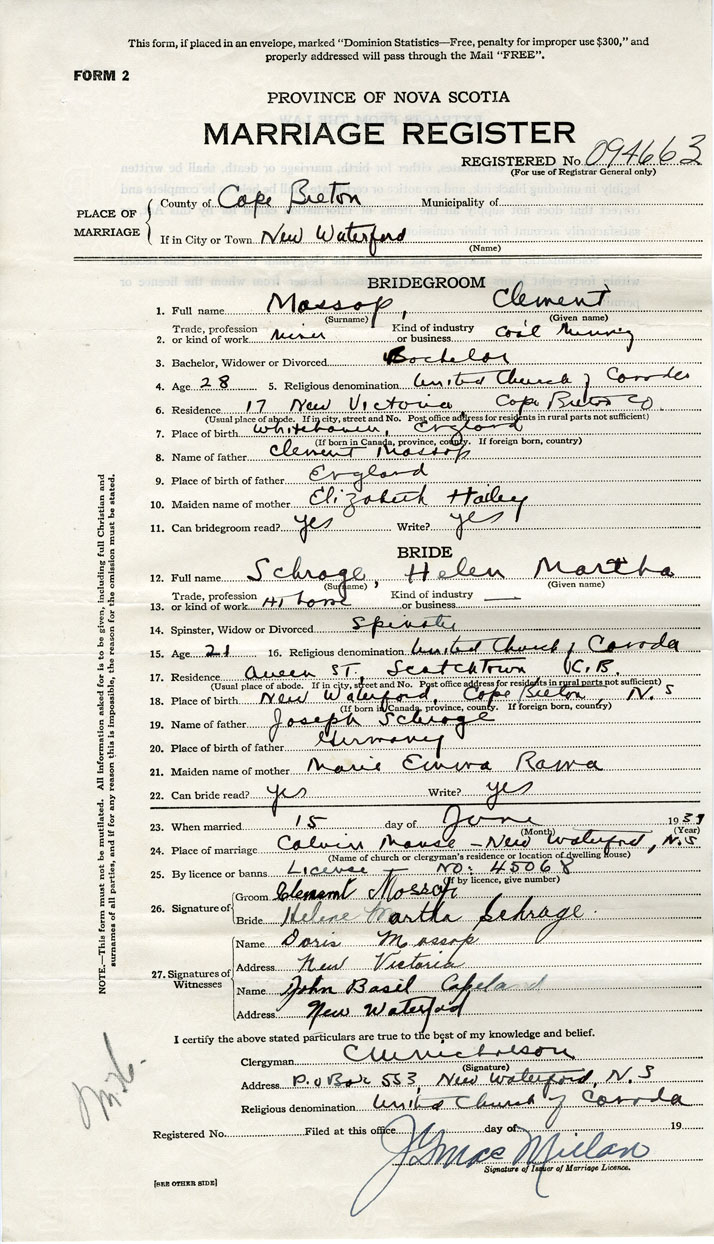 This form, if placed in an envelope, marked "Dominion Statistics—Free, penalty for improper use $300," and
properly addressed will pass through the Mail "FREE".
FORM 2
PROVINCE OF NOVA SCOTIA
MARRIAGE REGISTER
REGISTERED No. 094663
(For use of Registrar General only)
PLACE OF MARRIAGE
County of Cape Breton Municipality of
If in City or Town New Waterford
(Name)
BRIDEGROOM
1. Full name Mossop, Clement
(Surname) (Given name)
2. Trade, profession or kind of work miner Kind of industry or business Coal Mining
3. Bachelor, Widower or Divorced Bachelor
4. Age 28 5. Religious denomination United Church of Canada
6. Residence 17 New Victoria Cape Breton Co.
(Usual place of abode. If in city, street and No. Post office address for residents in rural parts not sufficient)
7. Place of birth Whitehaven, England
(If born in Canada, province, county. If foreign born, country)
8. Name of father Clement Mossop
9. Place of birth of father England
10. Maiden name of mother Elizabeth Hailey
11. Can bridegroom read? yes Write? yes
BRIDE
12. Full name Schrage, Helen Martha
(Surname) (Given name)
13. Trade, profession or kind of work At home Kind of industry or business —
14. Spinster, Widow or Divorced Spinster
15. Age 21 16. Religious denomination United Church of Canada
17. Residence Queen St, Scotchtown C.B.
(Usual place of abode. If in city, street and No. Post office address for residents in rural parts not sufficient)
18. Place of birth New Waterford, Cape Breton, N.S
(If born in Canada, province, county. If foreign born, country)
19. Name of father Joseph Schrage
20. Place of birth of father Germany
21. Maiden name of mother Marie Emma Rama
22. Can bride read? yes Write? yes
23. When married 15 day of June 1939
(Month) (Year)
24. Place of marriage Calvin Manse - New Waterford, N.S
(Name of church or clergyman's residence or location of dwelling house)
25. By licence or banns License - NO: 45068
(If by licence, give number)
26. Signature of
Groom Clement Mossop
Bride Helene Martha Schrage.
27. Signatures of Witnesses
Name Doris Mossop
Address New Victoria
Name John Basil Copeland
Address New Waterford
I certify the above stated particulars are true to the best of my knowledge and belief.
Clergyman CW Nicholson
(Signature)
Address P.O Box 553, New Waterford, N.S
Religious denomination United Church of Canada
Registered No. Filed at this office day of 19
J G MacMillan
Signature of Issuer of Marriage Licence.
[SEE OTHER SIDE]
NOTE.—This form must not be mutilated. All information asked for is to be given, including full Christian and
surnames of all parties, and if for any reason this is impossible, the reason for the omission must be stated.